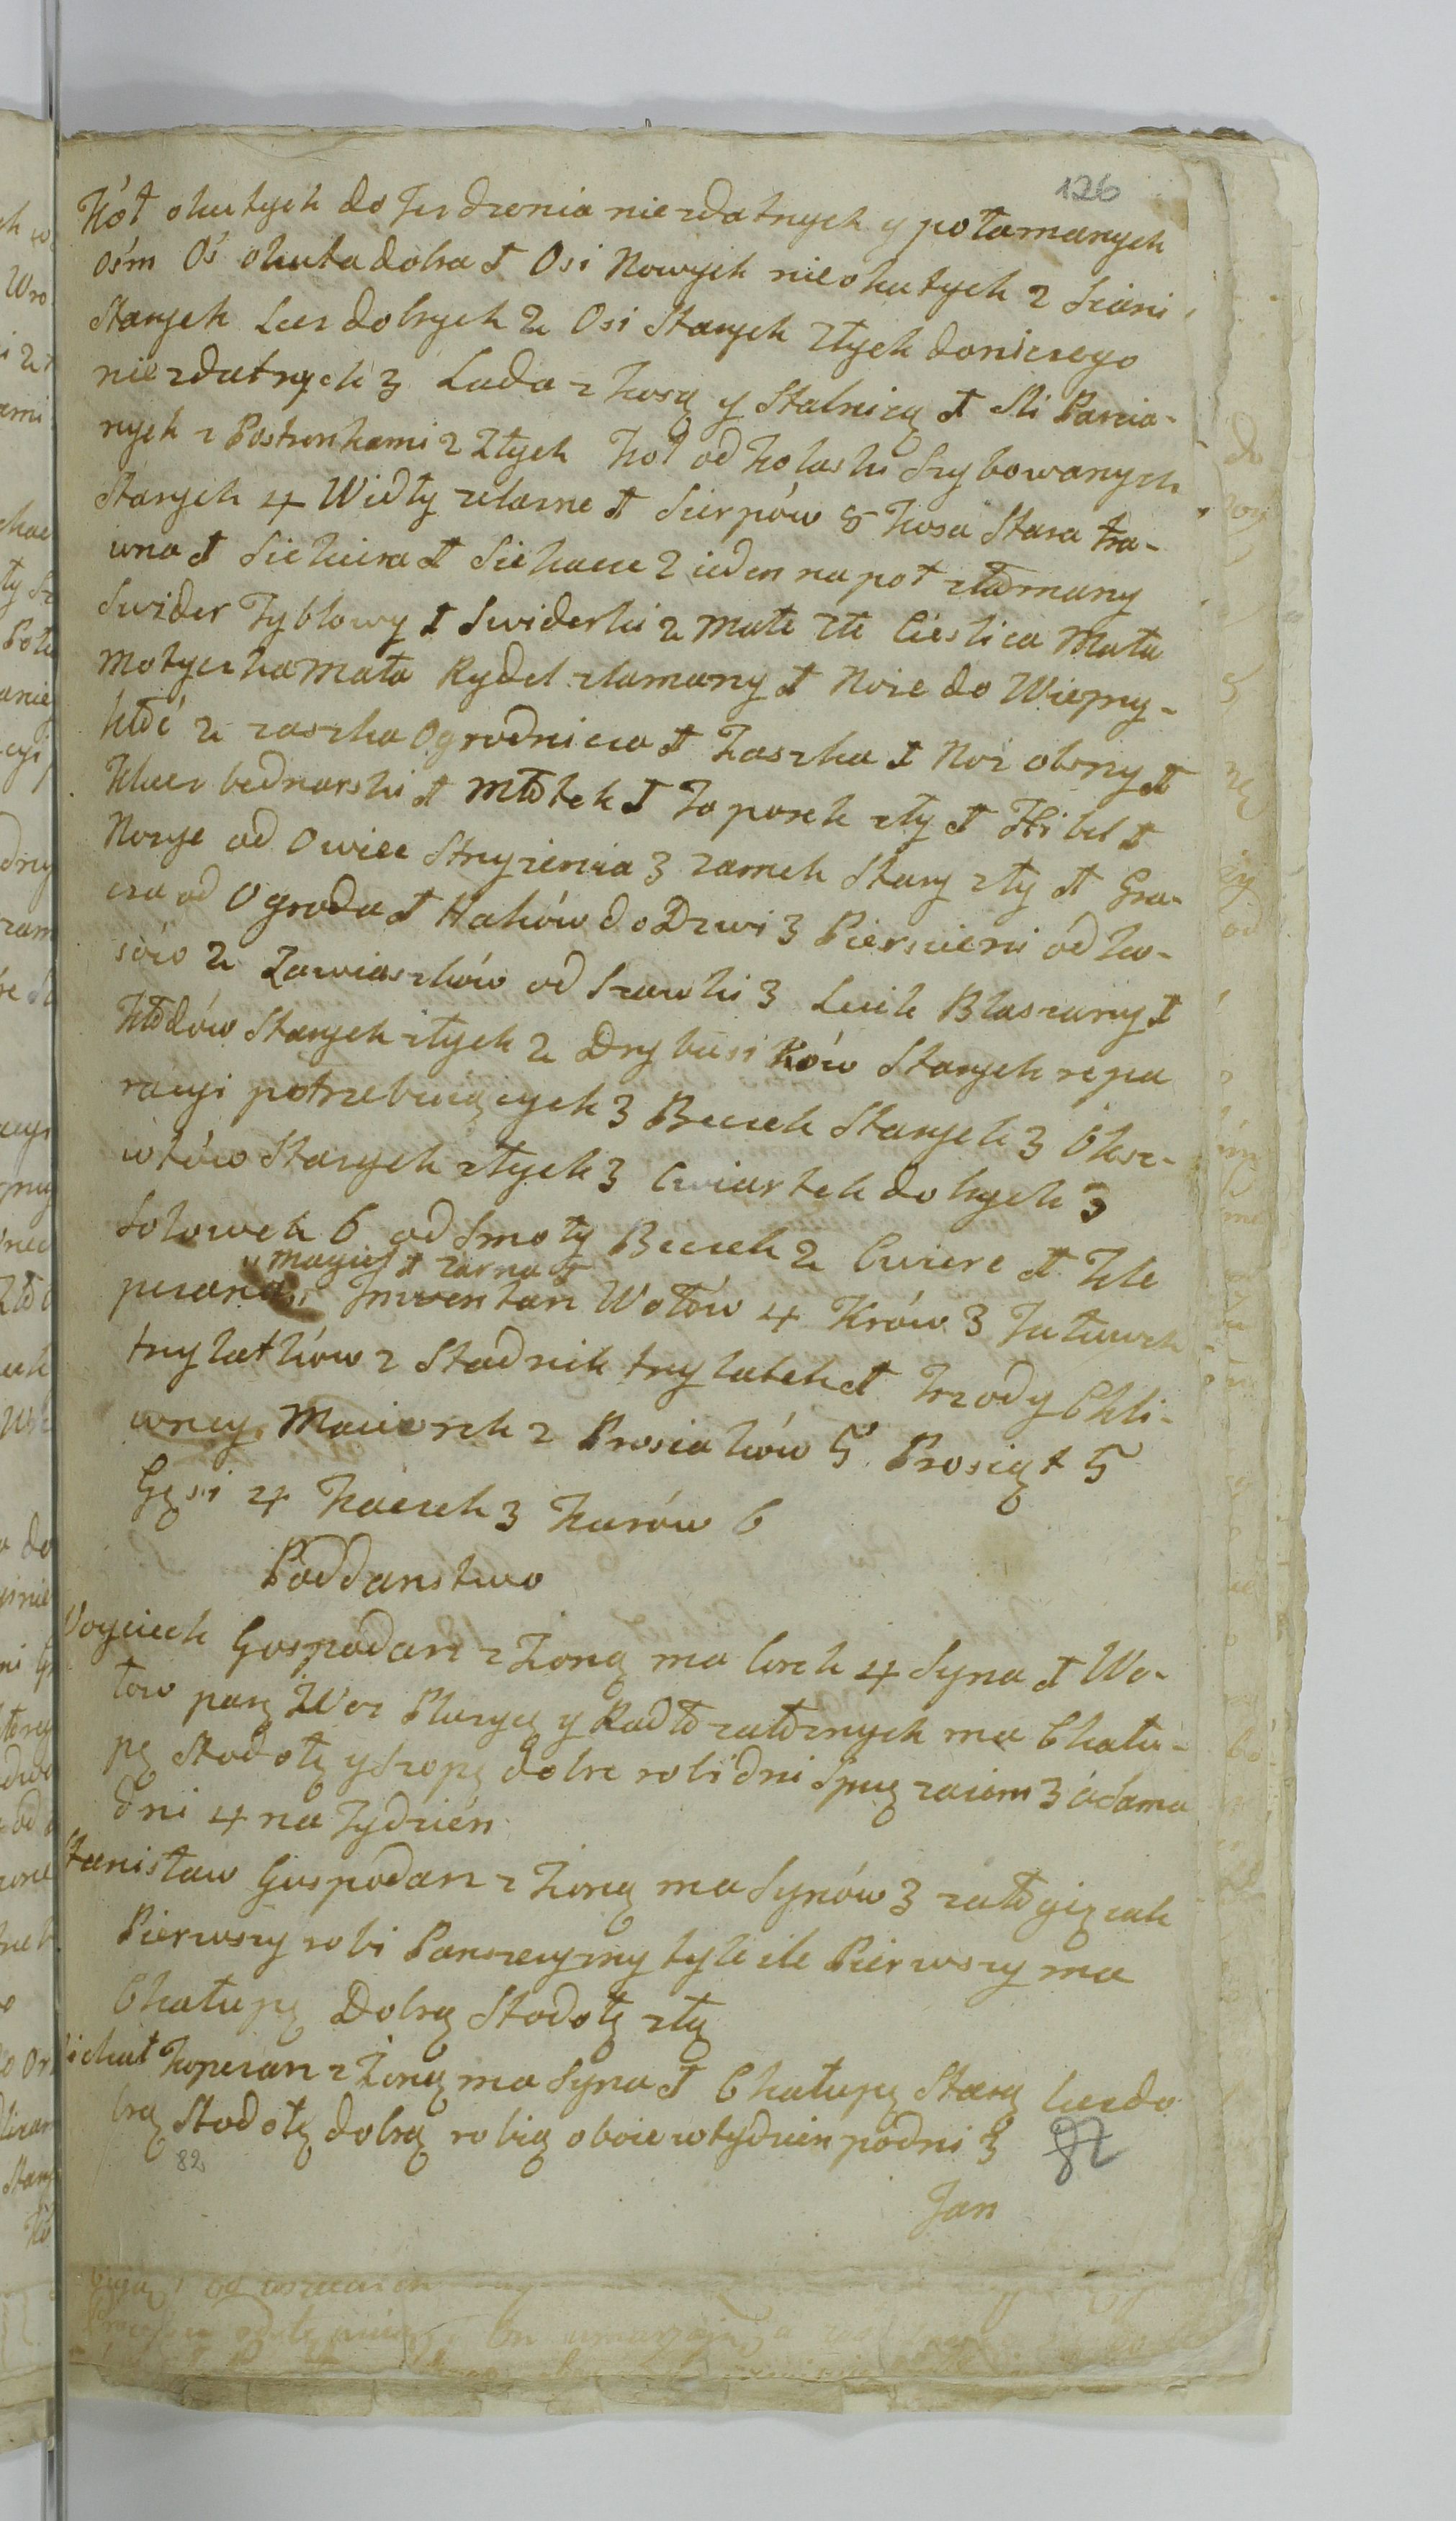 126
Kół okutych do jeżdzenia niezdatnych y połamanych
ośm Oś okuta dobra 1 Osi Nowych nieokutych 2 Sieni
Starych Lecz dobrych 2 Osi Starych złych do niczego
niezdatnych 3 Lada z kosą y Stalnicą 1 Sli Parcia-
nych z Postronkami 2 złych Kół od Kolaski Szybowanych
Starych 4 Widły zelazne 1 Sierpów 8 Kosa Stara tra-
wna 1 Siekiera 1 Siekacze 2 ieden na poł złómany
Swider Tyblowy 1 Swiderki 2 Małe złe Cieslica Mała
Motyczka Mała Rydel złamany 1 Noże do Wieprzy-
kłóć 2 raszka Ogrodnicza 1 Raszka 1 Noż obsny 1
Klucz bednarski 1 Młotek 1 Toporek zły 1 Hibel 1
Nozyc od Owiec Strzyzenia 3 zamek Stary zły 1 Gra-
cza od Ogroda 1 Haków do Drzwi 3 Pierscieni od ko-
sów 2 Zawiaszków od Szawki 3 Leik Blaszany 1
Kłódów Starych złych 2 Drybusików Starych repa
racyi potrzebuiących 3 Beczek Starych 3 Oksze-
wtów Starych złych 3 Cwiartek dobrych 3
Solowek 6 od Smoły Beczek 2 Cwierc 1 Kle
Magiel 1 zarna 1
pczana Inwentarz Wołów 4 Krów 3 Jałuwek
trzylatków 2 Stadnik trzylatek 1 Trzody Chli-
wney Maciorek 2 Prosiaków 5 Prosiąt 5
Gęsi 4 Kaczek 3 Kurów 6
Poddanstwo
Woyciech Gospodarz z Żoną ma Corek 4 Syna 1 Wo-
łow parę Woz Pluzycę y Radło załoznych ma Chału-
pę Stodołę y Szopę dobre robi dni Sprzęzaiem 3 a sama
dni 4 na Tydzień
Stanisław Gospodarz z Żoną ma Synów 3 załogię iak
Pierwszy robi Panszczyzny tyle ile Pierwszy ma
Chałupę Dobrą Stodołę złą
Michał Kopczarz z Żoną ma Syna 1 Chałupę Starą lecz do
brą Stodołę dobrą robią oboie w tydzien po dni 3
82
82
Jan